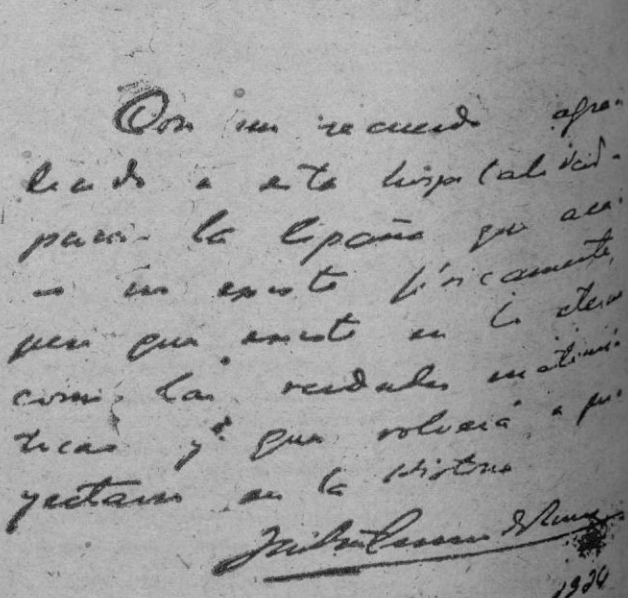 Con un recuerdo agra-
decido a esta hospitalidad.
para la España que aca-
so no existe físicamente,
pero que existe en lo eterno
como las verdades matemá-
ticas y que volverá a pro-
yectarse en la Historia